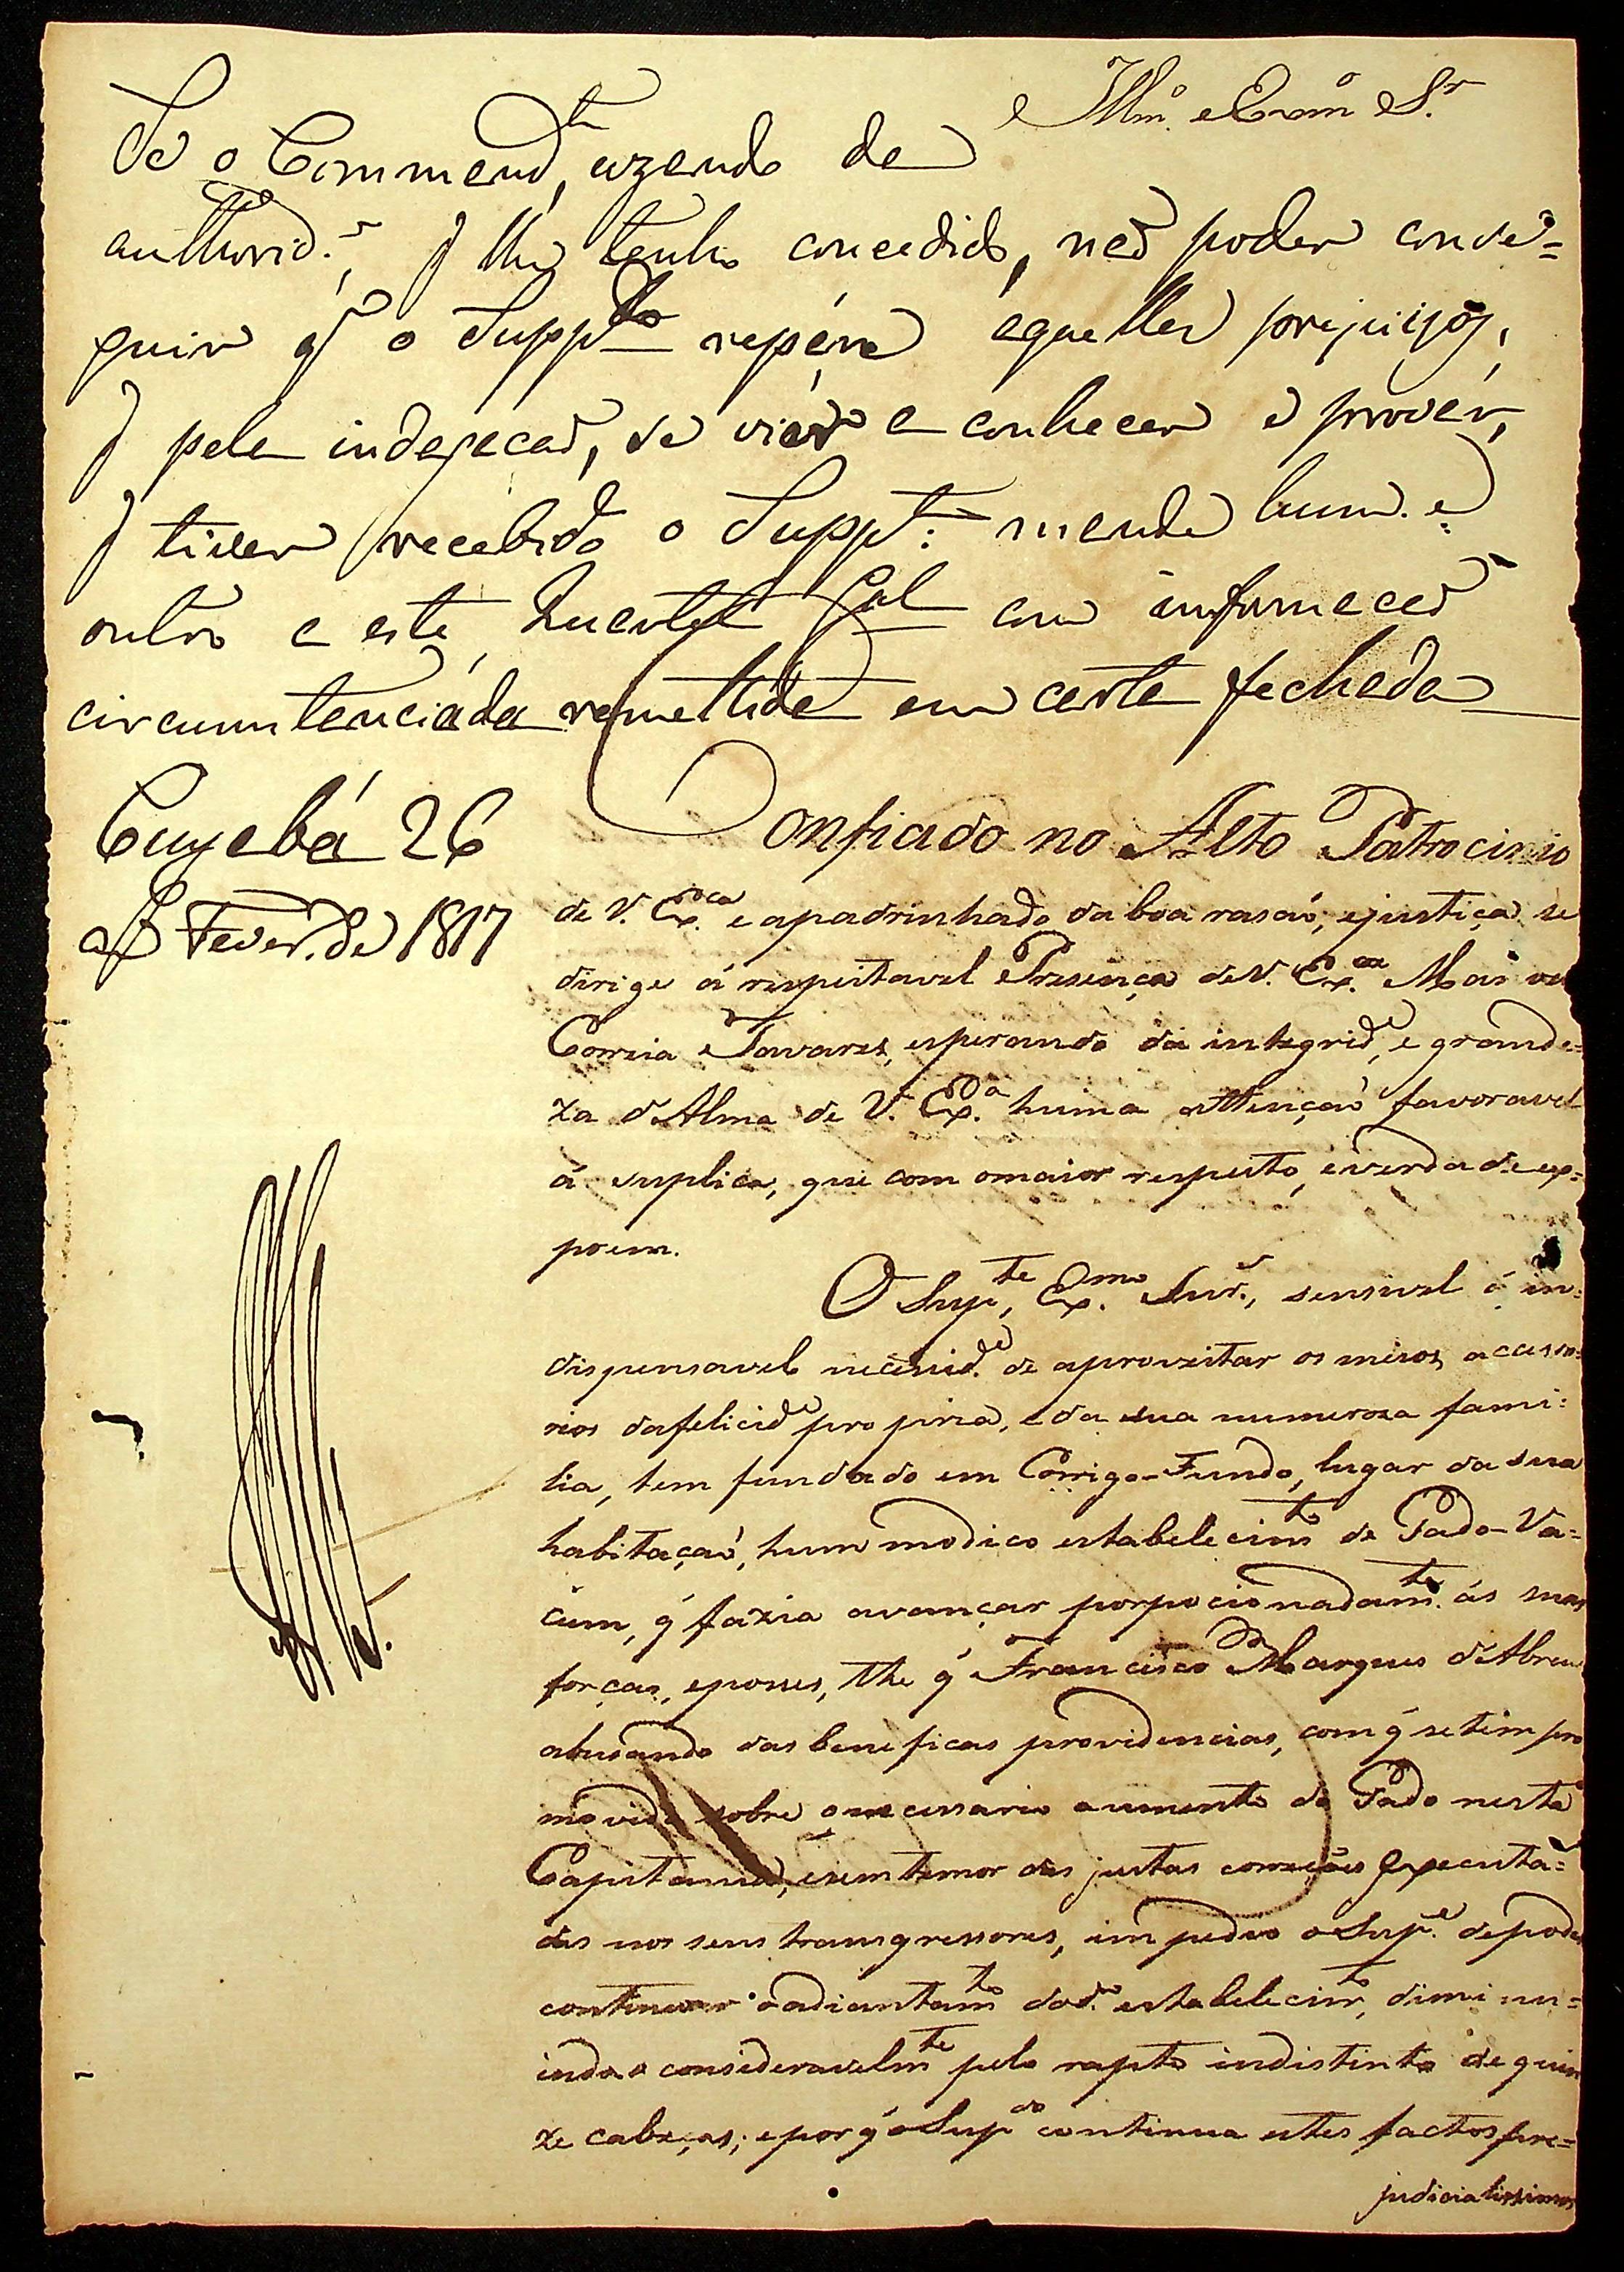 Illm.º e Exm.º S.r
Se o Commend.te, uzando da
authorid.e, q̃ lhe tenho concedido, naõ poder conse=
guir q̃ o Supp.do repáre aquelles prejuizos,
q̃ pela indagacaõ, se viér a conhecer e provár,
q̃ tiver recebido o Supp.te: mande hum. e
outro a este Quartel G.al com informacaõ
circumstanciáda remettida em carta fechada
Cuyabá 26
de Fever.º de 1817
Confiado no Alto Patrocinio
de V. Ex.ca e apadrinhado da boa rasaõ, e justiça se
dirige á respeitavel Presença de V. Ex.ca
Correia Tavares, esperando da integrid.e, e grande=
za d'Alma de V. Ex.ca huma attençaõ favoravel
á suplica, que com o maior respeito, e verdade ex=
poem.
O Sup.te, Ex.mo Snr., sensivel á in=
dispensavel necessid.e de aproveitar os meios acesso=
rios da felicid.e propria, e da sua numeroza fami=
lia, tem fundado em Corrigo-Fundo, lugar da sua
habitaçaõ, hum modico estabelecim.to de Gado-Va=
cum, q̃ fazia avançar porpocionadam.te ás suas
forças, e posses, the q̃ Francisco Marques d'Abreu
abusando das beneficas providencias, com q̃ se tem pro
movido sobre o necessario aumento do Gado nesta
Capitania, e sem temor das justas correções executa=
das nos seus transgressores, impedio o Sup.e de poder
continuar o adiantam.to do d.º estabelecim.to, diminu=
indo o consideravelm.te pelo rapto indistinto de quin
ze cabeças; e por q̃ o Sup.do continua estes factos pre=
judicialissimos